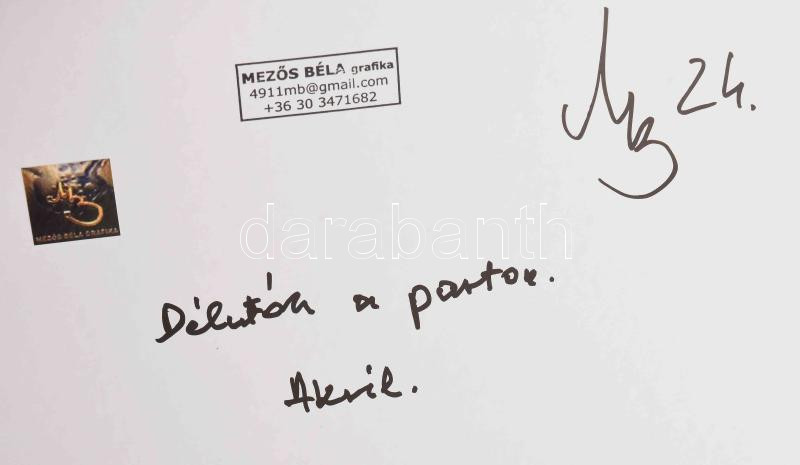 MEZŐS BÉLA grafika
4911mb@gmail.com
+36 30 3471682
MB 24.
MEZŐS BÉLA GRAFIKA
darabanth
Délután a parton.
Akril.